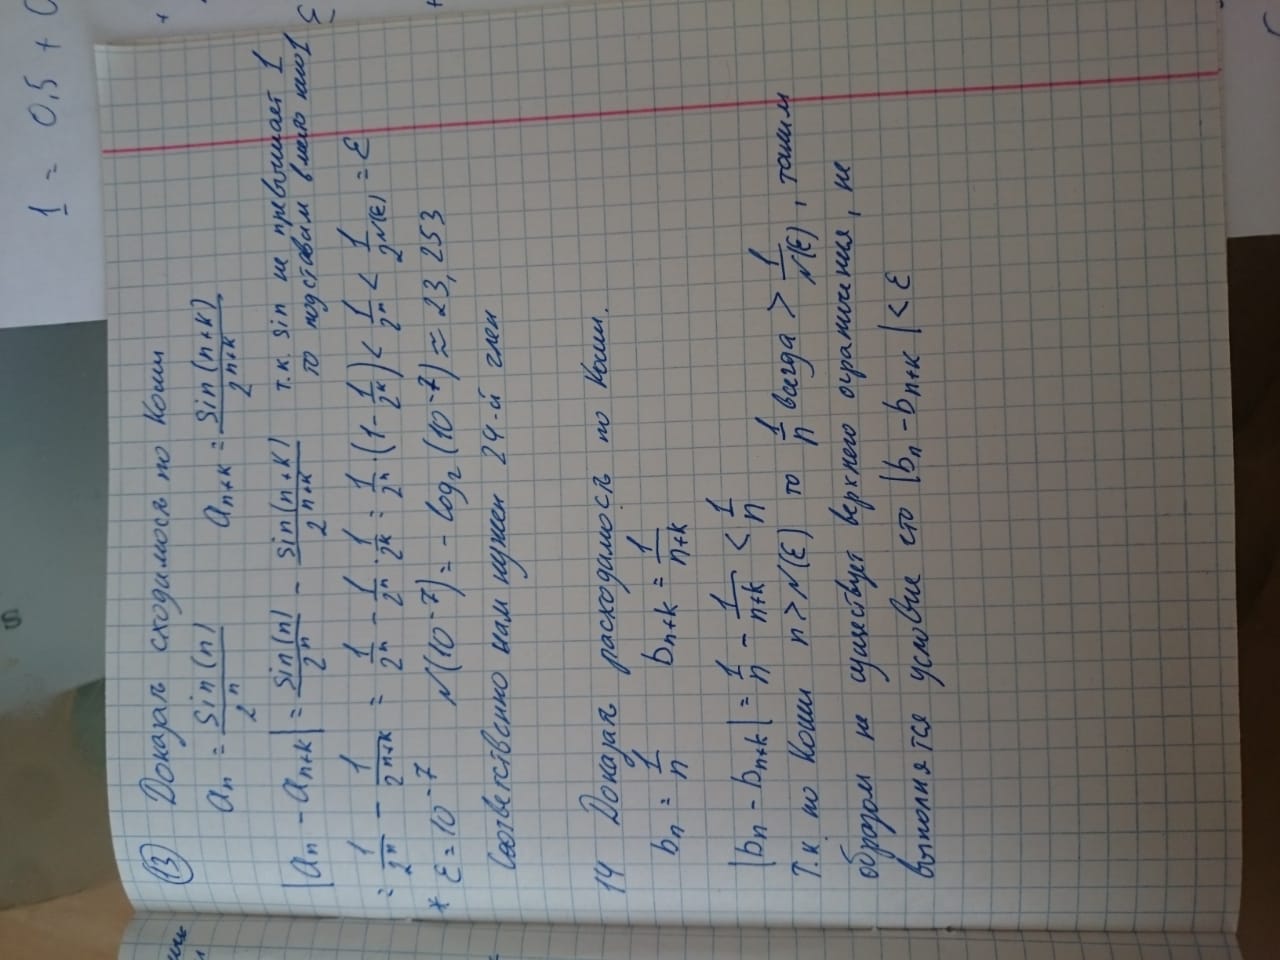 1 = 0,5 + 0
13 Доказать сходимость по Коши
aₙ = sin(n)/2ⁿ   aₙ₊ₖ = sin(n+k)/2ⁿ⁺ᵏ
|aₙ - aₙ₊ₖ| = sin(n)/2ⁿ - sin(n+k)/2ⁿ⁺ᵏ   т.к. sin не превышает 1
то подставим вместо него 1
= 1/2ⁿ - 1/2ⁿ⁺ᵏ = 1/2ⁿ - 1/2ⁿ · 1/2ᵏ = 1/2ⁿ · (1 - 1/2ᵏ) < 1/2ⁿ < 1/2^N(ε) = ε
* ε = 10⁻⁷   N(10⁻⁷) = - log₂(10⁻⁷) ≈ 23,253
Соответственно нам нужен 24-й член
14 Доказать расходимость по Коши.
bₙ = 1/n   bₙ₊ₖ = 1/n+k
|bₙ - bₙ₊ₖ| = 1/n - 1/n+k < 1/n
Т.к. по Коши n > N(ε) то 1/n всегда > 1/N(ε), таким
образом не существует верхнего ограничения, не
выполнятся условие что |bₙ - bₙ₊ₖ| < ε